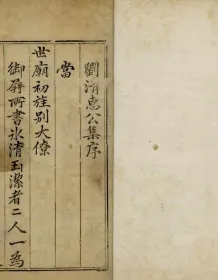 劉清惠公集序
當
世廟初旌別大僚
御屏所書氷清玉潔者二人一爲